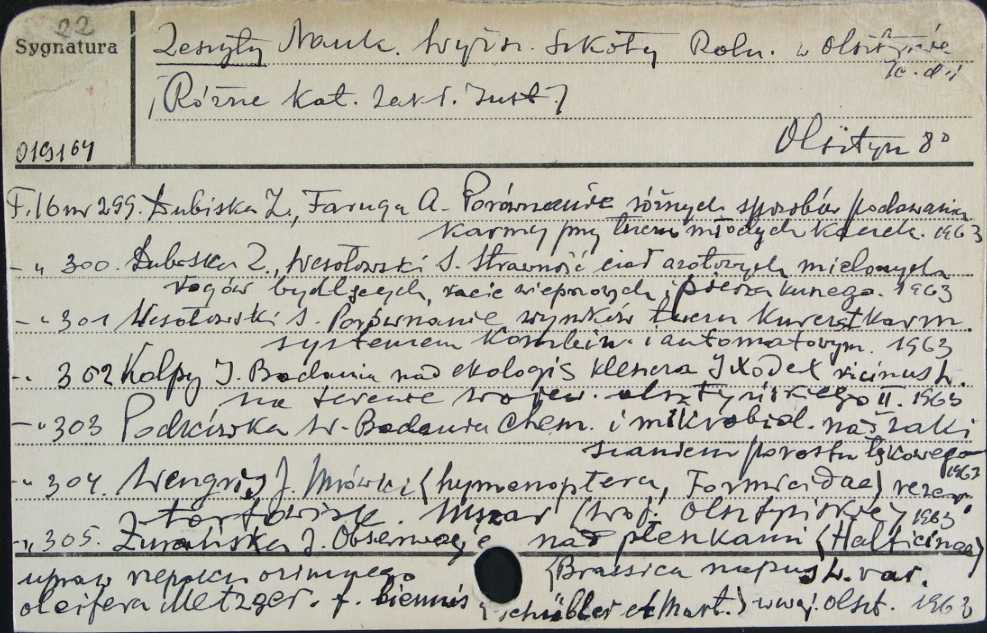 22
Sygnatura
Zeszyty Nauk. Wyższ. Szkoły Roln. w Olsztynie
(Różne Kat. Zakł. Inst.)
Olsztyn 8°
F.16 nr 299. Dubiska Z., Faruga A. Porównanie różnych sposobów podawania
karmy przy tuczu młodych kaczek. 1963
-„ 300. Dubiska Z., Wesołowski S. Strawność ciał azotowych mielonych
rogów bydlęcych, racic wieprzowych i pierza kurzego. 1963
-„ 301 Wesołowski S. Porównanie wyników tuczu kurcząt karm.
systemem kombin. i automatowym. 1963
-„ 302 Kolpy J. Badania nad ekologią kleszcza Ixodex ricinus L.
na terenie wojew. olsztyńskiego II. 1963
-„ 303 Podkówka W. Badania chem. i mikrobiol. nad zaki
szaniem porostu łąkowego
1963
-„ 304. Wengris J. Mrówki (hymenoptera, Formicidae) rezerw.
torfowisk. Mszar (woj. Olsztyńskie) 1963
-„ 305. J. Obserwacje nad płeszkami (Halticinae)
upraw rzepaku ozimego (Brassica napus L. var.
oleifera Metzger. f. biennis (Schübler et Mart.) w woj. olszt. 1963